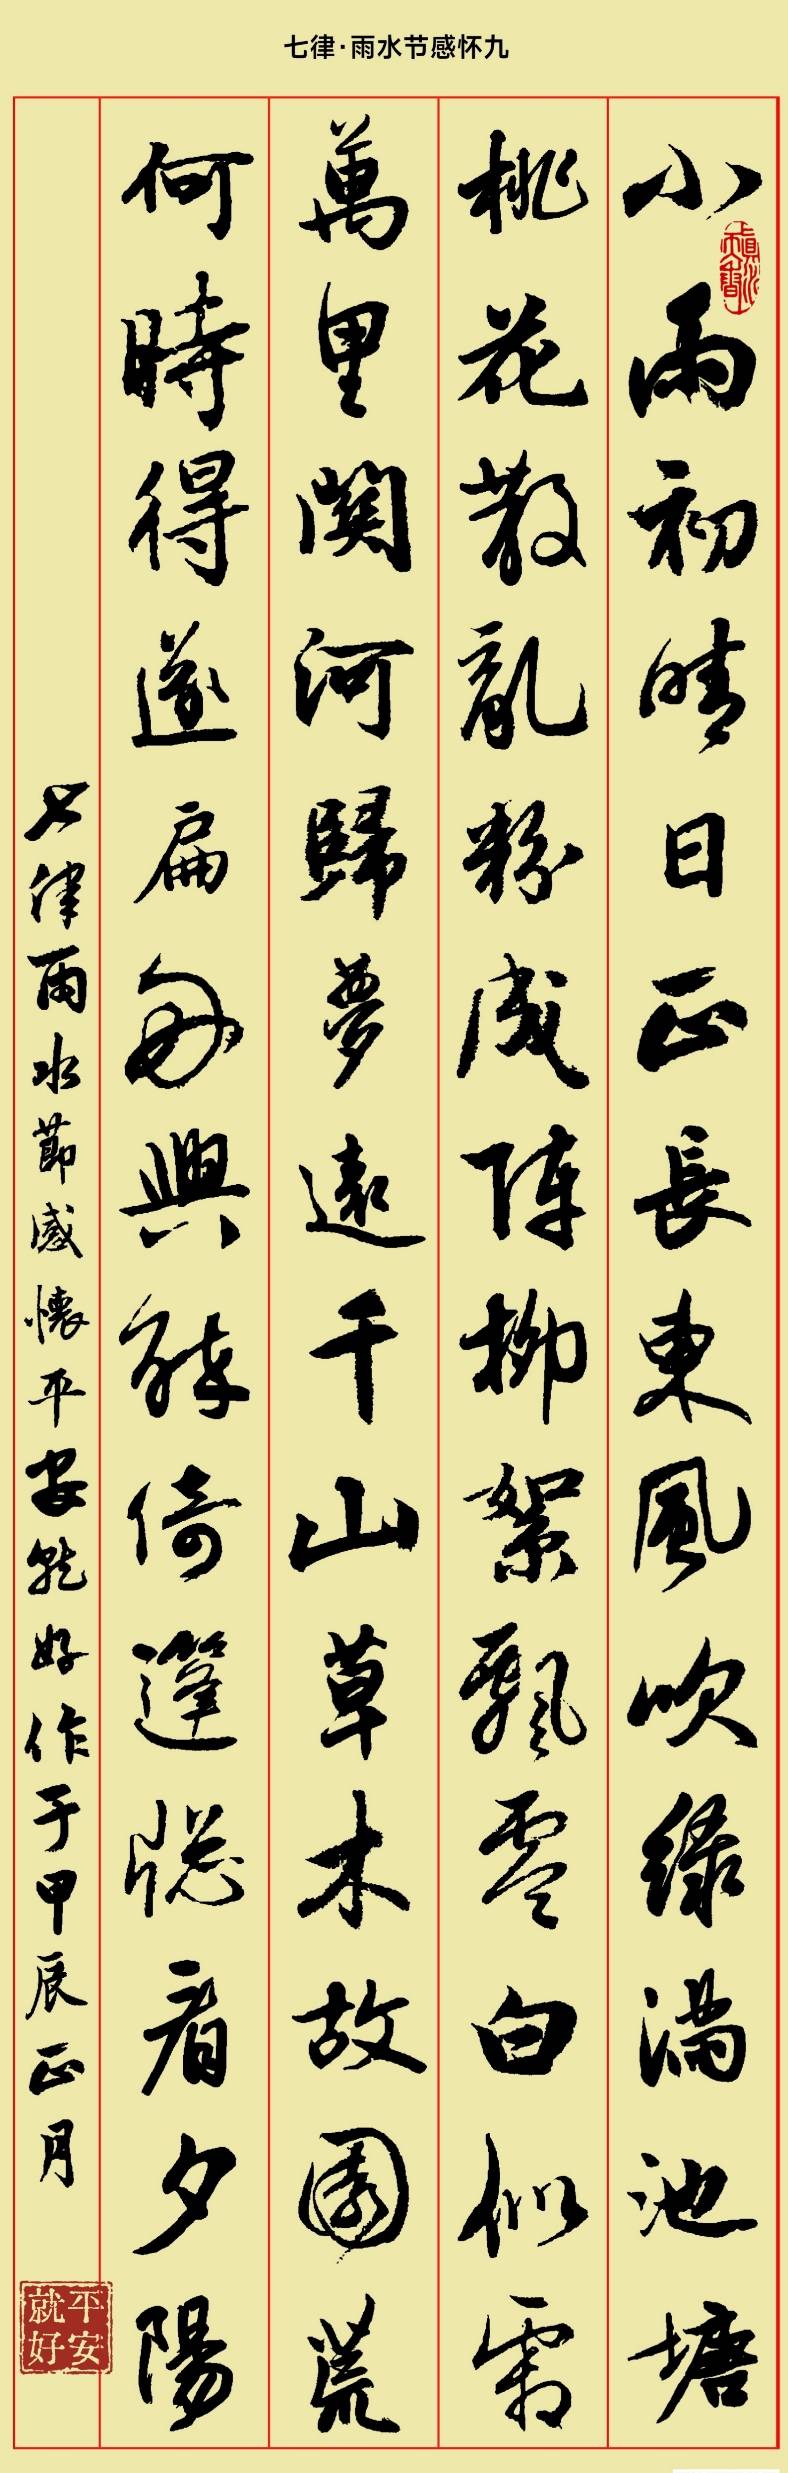 七律·雨水节感怀九
小雨初晴日正長東風吹绿满池塘
桃花散亂粉成阵柳絮飘零白似霜
萬里関河歸夢遠千山草木故園荒
何時得遂扁舟興醉倚篷窓看夕陽
七律雨水節感懷平安就好作于甲辰正月
平安
就好